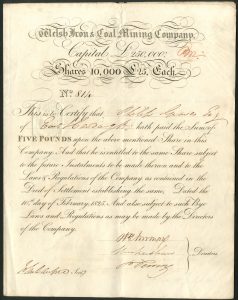 Welsh Iron & Coal Mining Company,
Capital £250,000,
Shares 10,000 £25, Each.
No. 814
This is to Certify that
of hath paid the Sum of
FIVE POUNDS upon the above mentioned Share in this
Company And that he is entitled to the same Share subject
to the future Instalments to be made thereon and to the
Laws & Regulations of the Company as contained in the
Deed of Settlement establishing the same, Dated the
10th day of February 1825. And also subject to such Bye
Laws and Regulations as may be made by the Directors
of the Company.
Directors